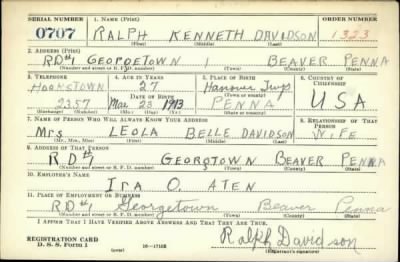 SERIAL NUMBER 1. NAME (Print) ORDER NUMBER
0707 RALPH KENNETH DAVIDSON 1323
(First) (Middle) (Last)
2. ADDRESS (Print)
RD#1 GEORGETOWN 1 BEAVER PENNA
(Number and street or R. F. D. number) (Town) (County) (State)
3. TELEPHONE 4. AGE IN YEARS 5. PLACE OF BIRTH 6. COUNTRY OF CITIZENSHIP
HOOKSTOWN 27 Hanover Twp
DATE OF BIRTH (Town or county)
2257 Mar 23 1913 PENNA USA
(Exchange) (Number) (Mo.) (Day) (Yr.) (State or country)
7. NAME OF PERSON WHO WILL ALWAYS KNOW YOUR ADDRESS 8. RELATIONSHIP OF THAT PERSON
Mrs LEOLA BELLE DAVIDSON WIFE
(Mr., Mrs., Miss) (First) (Middle) (Last)
9. ADDRESS OF THAT PERSON
RD#1 GEORGTOWN BEAVER PENNA
(Number and street or R. F. D. number) (Town) (County) (State)
10. EMPLOYER'S NAME
IRA O. ATEN
11. PLACE OF EMPLOYMENT OR BUSINESS
RD#1 Georgetown Beaver Penna
(Number and street or R. F. D. number) (Town) (County) (State)
I AFFIRM THAT I HAVE VERIFIED ABOVE ANSWERS AND THAT THEY ARE TRUE.
REGISTRATION CARD
D. S. S. Form 1 (over) 16—17105 Ralph Davidson
(Registrant's signature)